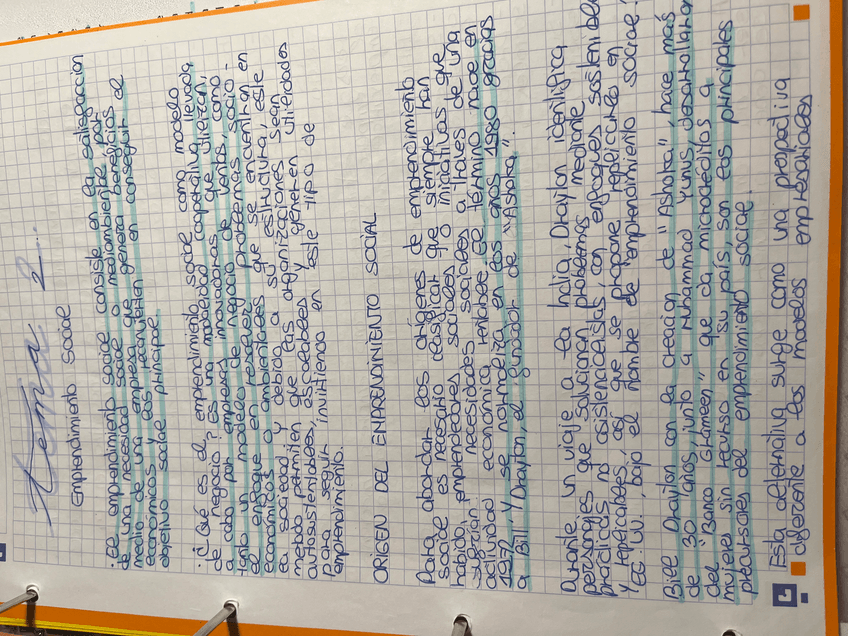 tema 2...
Emprendimiento social
· El emprendimiento social consiste en la satisfacción
de una necesidad social o medioambiental por
medio de una empresa que genera beneficios
económicos y los reinvierten en conseguir el
objetivo social principal.
· ¿Qué es el emprendimiento social como modelo
de negocio?; es una modalidad corporativa llevada
a cabo por empresas innovadoras que utilizan,
tanto un modelo de negocio de lentos como
el enfoque en resolver problemas socio-
económicos o ambientales que se encuentran en
la sociedad y debido a su estructura, este
metodo permiten que las organizaciones sean
autosustentables, escalables y generen utilidades
para seguir invirtiendo en este tipo de
emprendimiento.
ORIGEN DEL EMPRENDIMIENTO SOCIAL
Para abordar los orígenes de emprendimiento
social es necesario clasificar que siempre han
habido emprendedores sociales o iniciativas que
suplían necesidades sociales a traves de una
actividad económica rentable. El término nace en
1972, y se normaliza en los años 1980 gracias
a Bill Drayton, el fundador de "Ashoka".
Durante un viaje a la India, Drayton identifica
personajes que solucionan problemas mediante
prácticas no asistencialistas, con enfoques sostenibles
y replicables, así que se propone replicarles en
EE.UU., bajo el nombre de "emprendimiento social".
Bill Drayton con la creación de "Ashoka" hace más
de 30 años, junto a Muhammad Yunus desarrollador
del "Banco Grameen" que da microcréditos a
mujeres sin recurso en su país, son los principales
precursores del emprendimiento social.
Esta alternativa surge como una prospectiva
diferente a los modelos empresariales